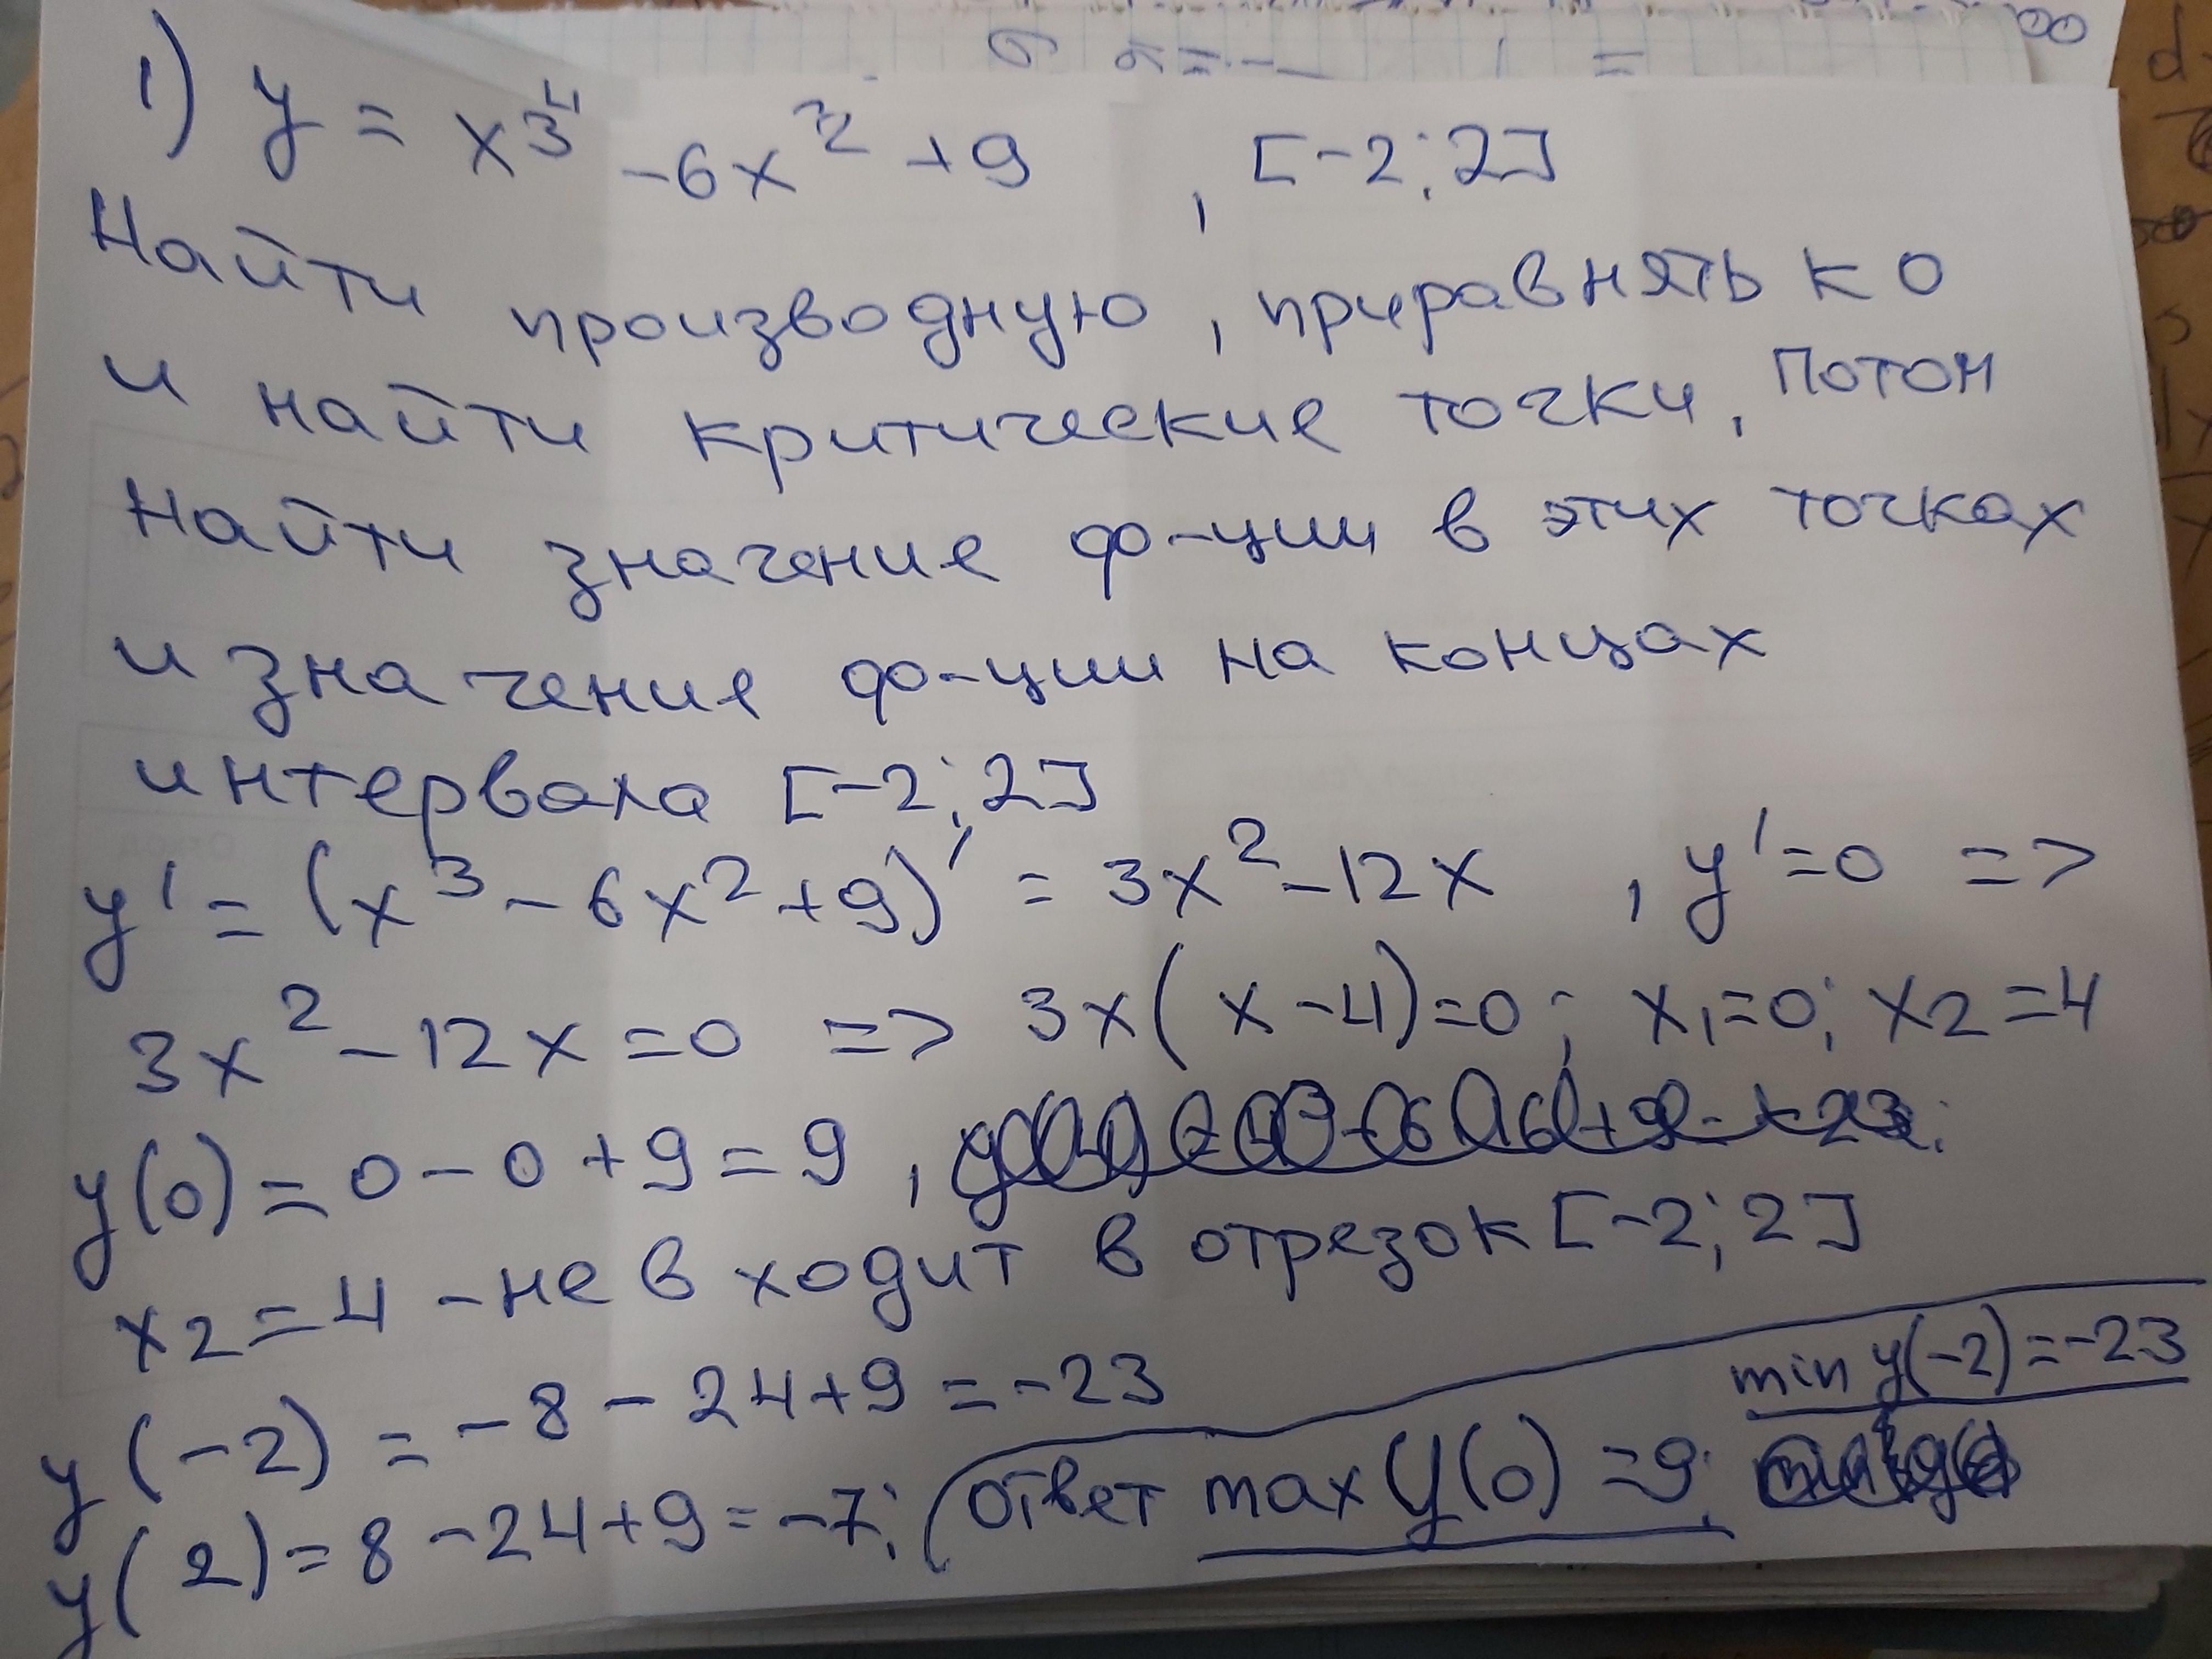 1) y = x³ - 6x² + 9 , [-2; 2]
Найти производную, приравнять к 0
и найти критические точки, потом
найти значение ф-ции в этих точках
и значение ф-ции на концах
интервала [-2; 2]
y' = (x³ - 6x² + 9)' = 3x² - 12x , y' = 0 =>
3x² - 12x = 0 => 3x(x - 4) = 0 ; x₁ = 0; x₂ = 4
y(0) = 0 - 0 + 9 = 9 ,
x₂ = 4 - не входит в отрезок [-2; 2]
y(-2) = -8 - 24 + 9 = -23
min y(-2) = -23
y(2) = 8 - 24 + 9 = -7; ответ max y(0) = 9;